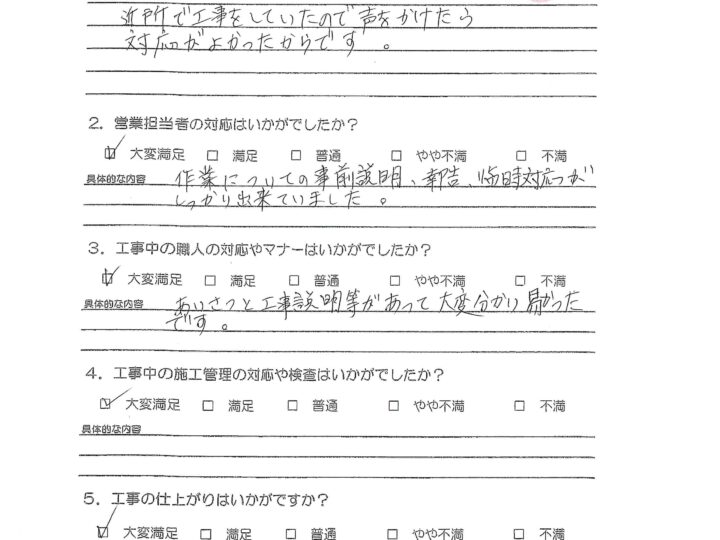 近所で工事をしていたので声をかけたら
対応がよかったからです。
2. 営業担当者の対応はいかがでしたか?
☑ 大変満足 □ 満足 □ 普通 □ やや不満 □ 不満
具体的な内容 作業についての事前説明、報告、臨時対応が
しっかり出来ていました。
3. 工事中の職人の対応やマナーはいかがでしたか?
☑ 大変満足 □ 満足 □ 普通 □ やや不満 □ 不満
具体的な内容 あいさつと工事説明等があって大変分かり易かった
です。
4. 工事中の施工管理の対応や検査はいかがでしたか?
☑ 大変満足 □ 満足 □ 普通 □ やや不満 □ 不満
具体的な内容
5. 工事の仕上がりはいかがですか?
☑ 大変満足 □ 満足 □ 普通 □ やや不満 □ 不満